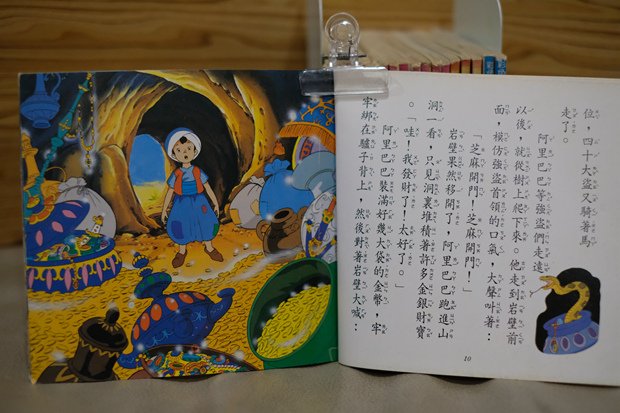 位，四十大盜又騎著馬
走了。
阿里巴巴等強盜們走遠
以後，就從樹上爬下來。他走到岩壁前
面，模仿強盜首領的口氣，大聲叫著：
「芝麻開門！芝麻開門！」
岩壁果然移開了，阿里巴巴跑進山
洞一看，只見洞裏堆積著許多金銀財寶
。「哇！我發財了！太好了。」
阿里巴巴裝滿好幾大袋的金幣，牢
牢綁在驢子背上，然後對著岩壁大喊：
10